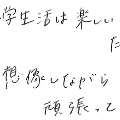 学生活は楽しい
た
想像しながら
頑張って